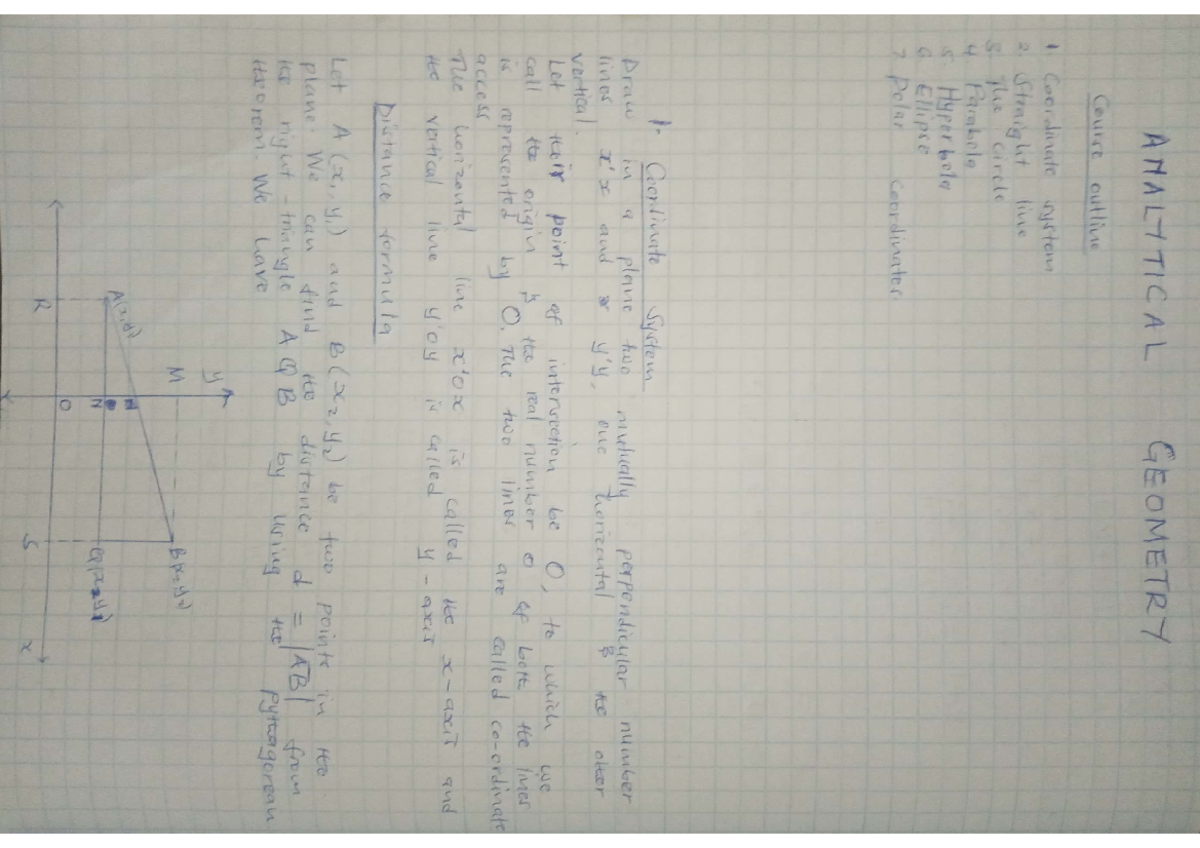 ANALYTICAL GEOMETRY
Course outline
1 Coordinate system
2. Straight line
3. The circle
4 Parabola
5. Hyperbola
6 Ellipse
7 Polar Coordinates
1. Coordinate System
Draw in a plane two mutually perpendicular number
lines x'x and y'y, one horizontal & the other
vertical.
Let their point of intersection be O, to which we
call the origin & the real number 0 of both the lines
is represented by O. The two lines are called co-ordinate
access
The horizontal line x'ox is called the x-axis and
the vertical line y'oy is called y-axis
Distance formula
Let A (x₁, y₁) and B (x₂, y₂) be two points in the
plane. We can find the distance d = |AB| from
the right-triangle AQB by using the pythagorean
theorem. We have
y
M
B(x₂y₂)
A(x₁y₁)
N
Q(x₂y₁)
O
R
S
x